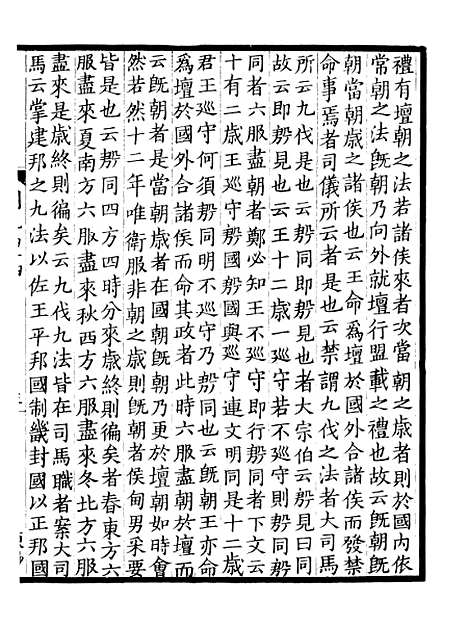 禮有壇朝之法若諸侯來者次當朝之歲者則於國內依
常朝之法旣朝乃向外就壇行盟載之禮也故云旣朝
朝當朝歲之諸侯也云王命爲壇於國外合諸侯而發禁
命事焉者司儀所云者是也云禁謂九伐之法者大司馬
所云九伐是也云殷同卽殷見也者大宗伯云殷見曰同
故云卽殷見也云王十二歲一巡守若不巡守則殷同殷
同者六服盡朝者鄭必知王不巡守卽行殷同者下文云
十有二歲王巡守殷國殷國與巡守連文明同是十二歲
君王巡守何須殷同明不巡守乃殷同也云旣朝王亦命
爲壇於國外合諸侯而命其政者此時六服盡來旣於壇而
云旣朝者是當朝歲者在國朝旣朝乃更於壇朝如時會
然若然十二年唯衛服非朝之歲則旣朝者侯甸男采要
皆是也云殷同四方四時分來歲終則徧矣者春東方六
服盡來夏南方六服盡來秋西方六服盡來冬北方六服
盡來是歲終則徧矣云九伐九法皆在司馬職者案大司
馬云掌建邦之九法以佐王平邦國制畿封國以正邦國